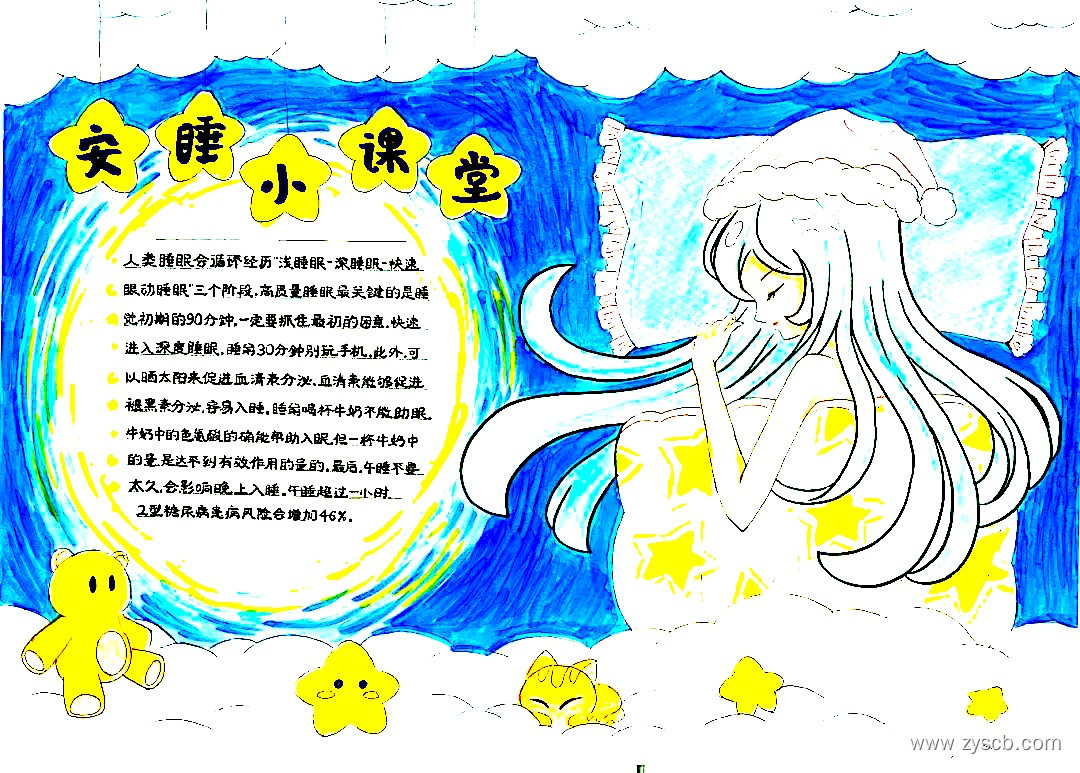 安睡小课堂
人类睡眠会循环经历"浅睡眠-深睡眠-快速
眼动睡眠"三个阶段,高质量睡眠最关键的是睡
觉初期的90分钟,一定要抓住最初的困意,快速
进入深度睡眠,睡前30分钟别玩手机,此外,可
以晒太阳来促进血清素分泌,血清素能够促进
褪黑素分泌,容易入睡,睡前喝杯牛奶不能助眠,
牛奶中的色氨酸的确能帮助入眠,但一杯牛奶中
的量是达不到有效作用的量的,最后,午睡不要
太久,会影响晚上入睡,午睡超过一小时
2型糖尿病患病风险会增加46%.
www zyscb.com